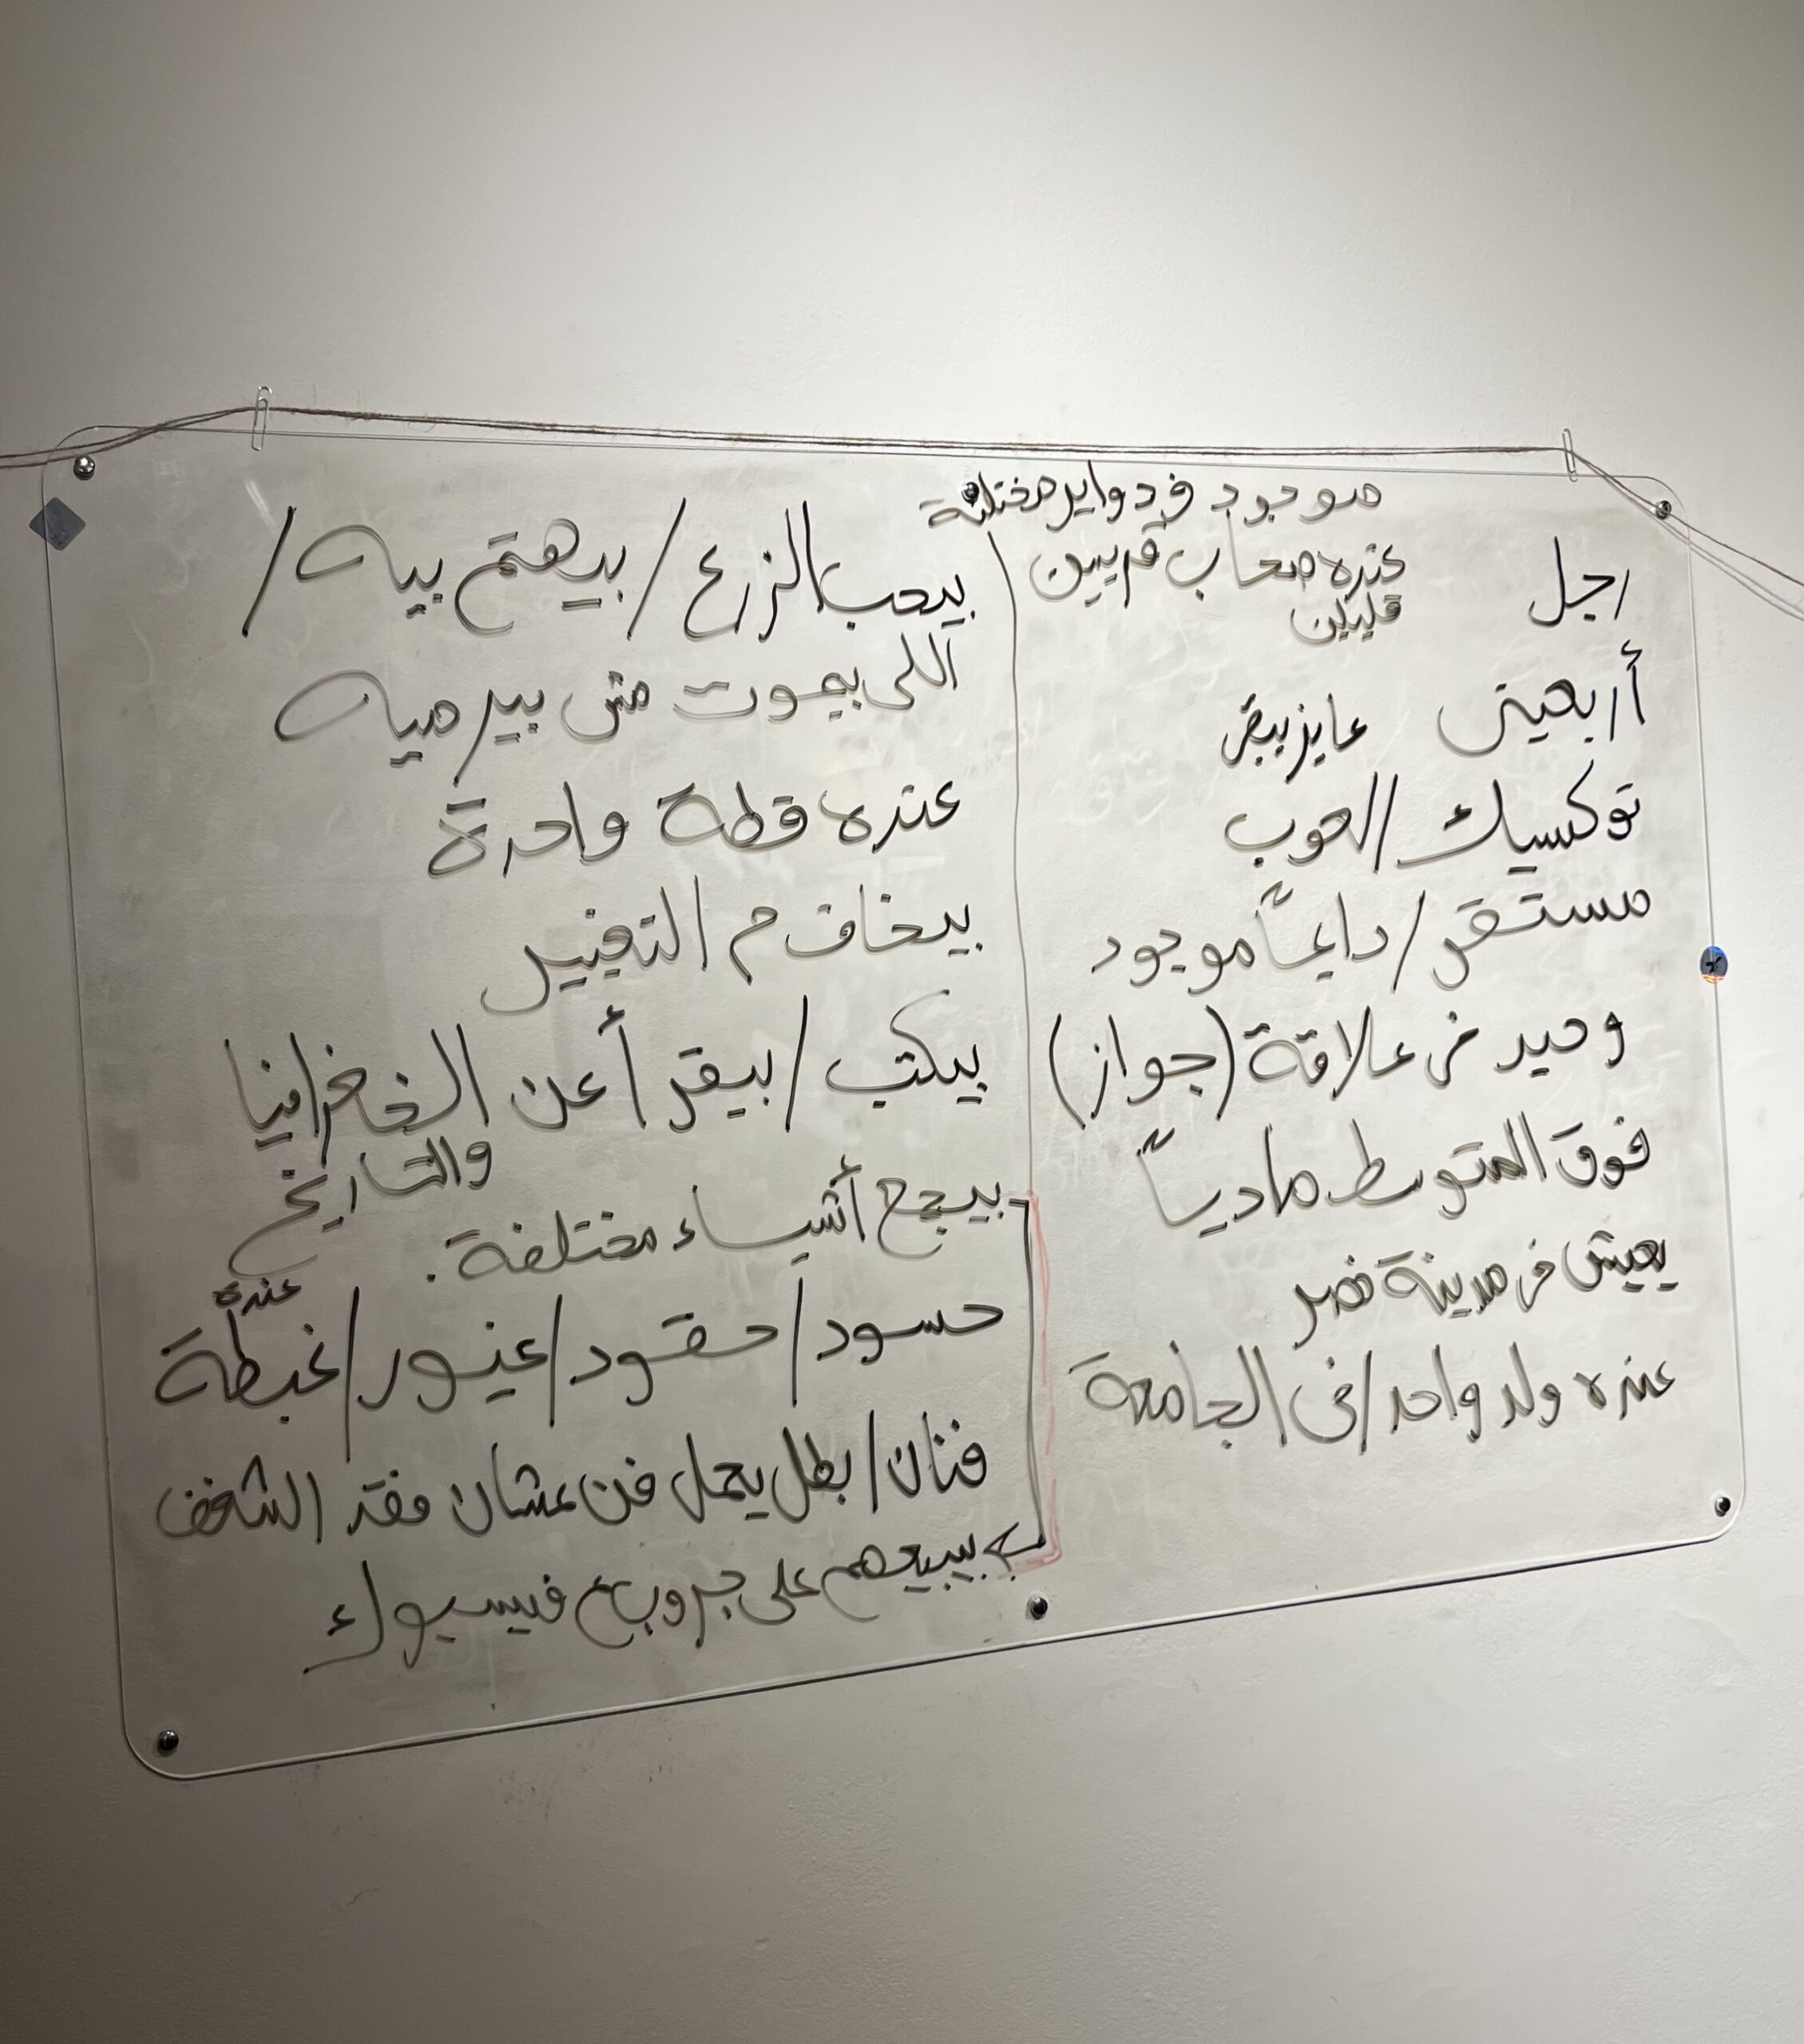 موجود ف دواير مختلفة
عنده صحاب قريبين
قليلين
رجل
أربعيني
عايز يبقى
توكسيك / لعوب
مستقر / دايماً موجود
وحيد في علاقة (جواز)
فوق المتوسط مادياً
يعيش في مدينة نصر
عنده ولد واحد / في الجامعة
بيحب الزرع / بيهتم بيه /
اللى بيموت مش بيرميه
عنده قطة واحدة
بيخاف م التغيير
بيكتب / بيقرأ عن الخغرافيا
والتاريخ
بيجمع أشياء مختلفة.
عنده
حسود / حقود / غيور / غبطة
فنان / بطل يعمل فن عشان فقد الشغف
بيبيعهم على جروب ع فيسبوك